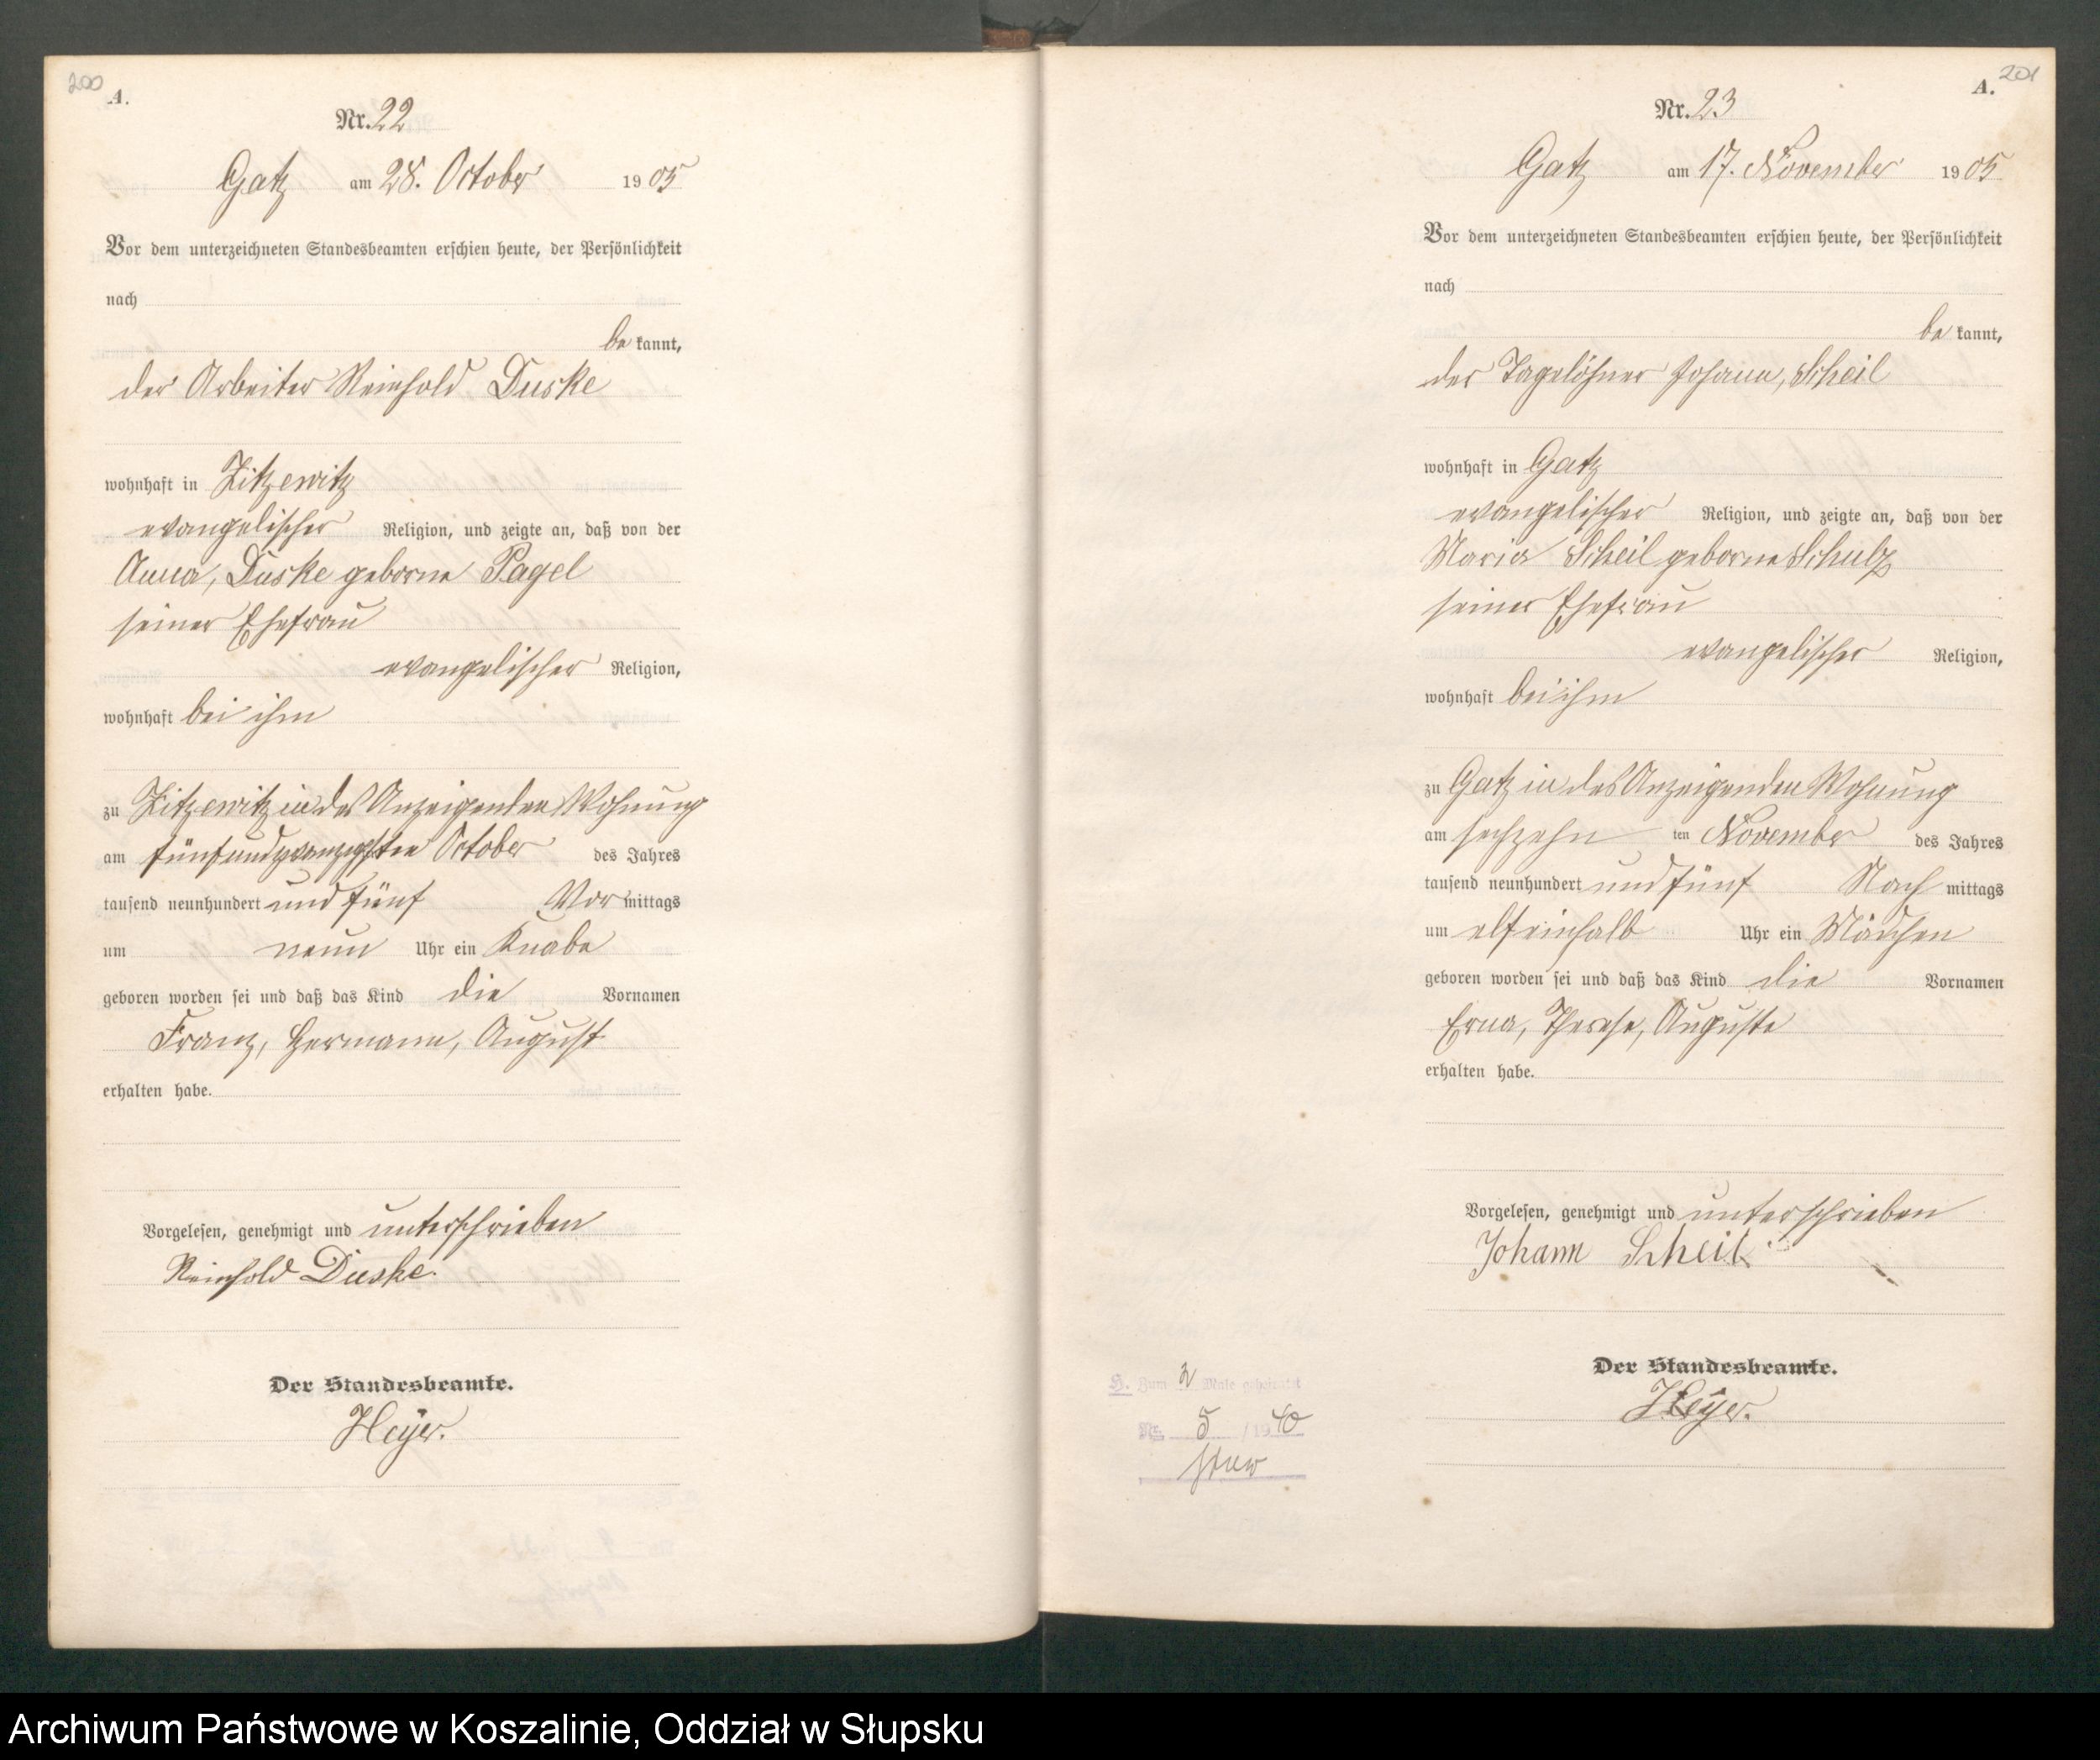 200
A.
Nr. 22
Gatz am 28. October 1905
Vor dem unterzeichneten Standesbeamten erschien heute, der Persönlichkeit
nach
be kannt,
der Arbeiter Reinhold Duske
wohnhaft in Zitzewitz
evangelischer Religion, und zeigte an, daß von der
Anna, Duske geborne Pagel
seiner Ehefrau
evangelischer Religion,
wohnhaft bei ihm
zu Zitzewitz in des Anzeigenden Wohnung
am fünfundzwanzigsten October des Jahres
tausend neunhundert und fünf Vor mittags
um neun Uhr ein Knabe
geboren worden sei und daß das Kind die Vornamen
Franz, Hermann, August
erhalten habe.
Vorgelesen, genehmigt und unterschrieben
Reinhold Duske.
Der Standesbeamte.
Heyer.
201
A.
Nr. 23
Gatz am 17. November 1905
Vor dem unterzeichneten Standesbeamten erschien heute, der Persönlichkeit
nach
be kannt,
der Tagelöhner Johann, Scheil
wohnhaft in Gatz
evangelischer Religion, und zeigte an, daß von der
Maria Scheil geborne Schulz
seiner Ehefrau
evangelischer Religion,
wohnhaft bei ihm
zu Gatz in des Anzeigenden Wohnung
am sechzehn ten November des Jahres
tausend neunhundert und fünf Nach mittags
um elfeinhalb Uhr ein Mädchen
geboren worden sei und daß das Kind die Vornamen
Erna, Therese, Auguste
erhalten habe.
Vorgelesen, genehmigt und unterschrieben
Johann Scheil
Der Standesbeamte.
Heyer.
H. Zum 2 Male geheiratet
Nr. 5 / 1940
Archiwum Państwowe w Koszalinie, Oddział w Słupsku